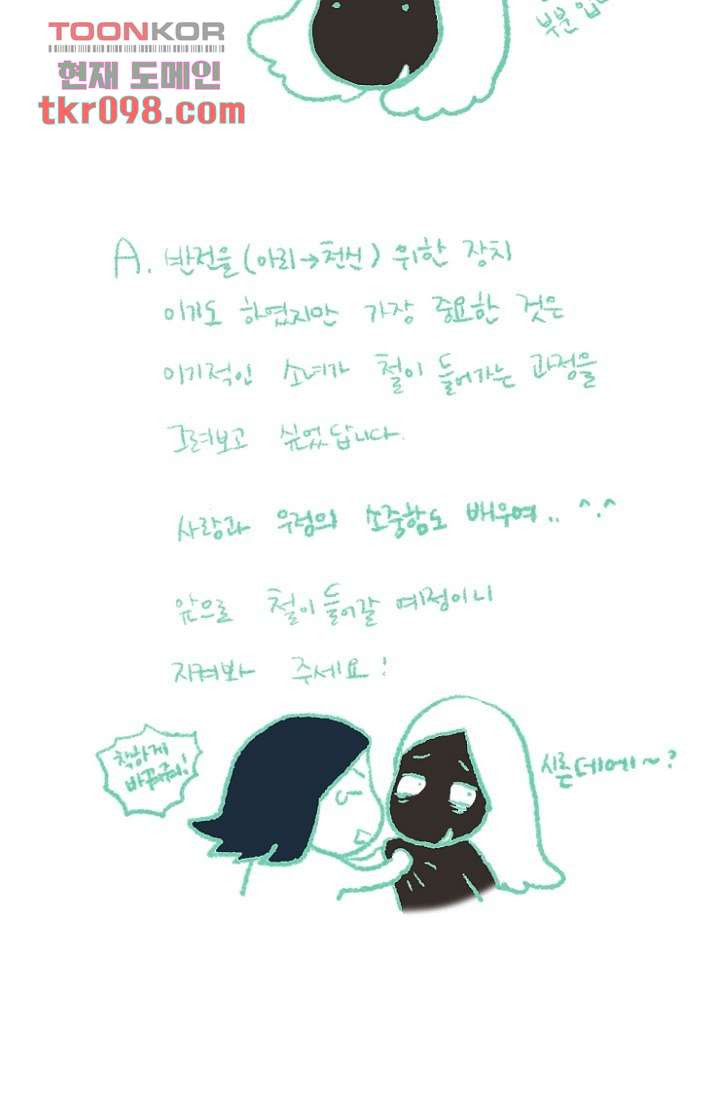 부분입
TOONKOR
현재 도메인
tkr098.com
A. 반전을(아리→천신) 위한 장치
이기도 하였지만 가장 중요한 것은
이기적인 소녀가 철이 들어가는 과정을
그려보고 싶었답니다.
사랑과 우정의 소중함도 배우며.. ^.^
앞으로 철이 들어갈 예정이니
지켜봐 주세요!
착하게
바꿔줘!
시른데에~?